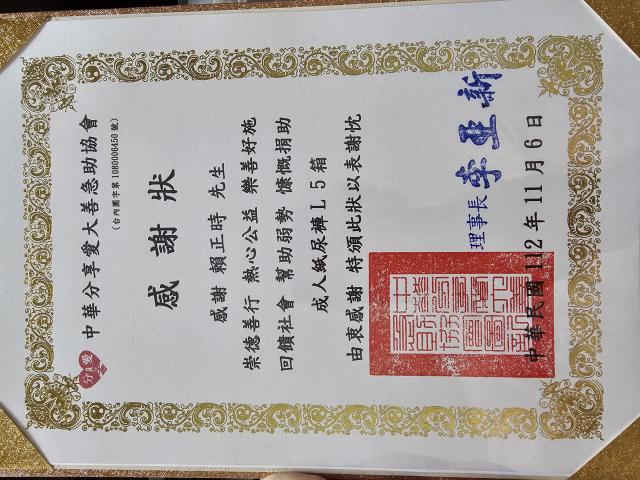 分 愛
中華分享愛大善急助協會
(台內團字第 1080006450 號)
感謝狀
感謝 賴正時 先生
崇德善行 熱心公益 樂善好施
回饋社會 幫助弱勢 慷慨捐助
成人紙尿褲L 5 箱
由衷感謝 特頒此狀以表謝忱
理事長 李亞新
中華民國 112 年 11 月 6 日